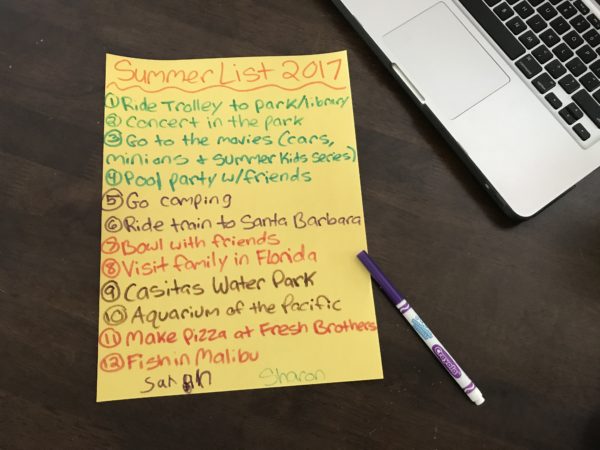 Summer List 2017
① Ride Trolley to park/library
② Concert in the park
③ Go to the movies (cars,
minions + Summer Kids series)
④ Pool party w/friends
⑤ Go camping
⑥ Ride train to Santa Barbara
⑦ Bowl with friends
⑧ Visit family in Florida
⑨ Casitas Water Park
⑩ Aquarium of the Pacific
⑪ Make Pizza at Fresh Brothers
⑫ Fish in Malibu
Sharon
Crayola